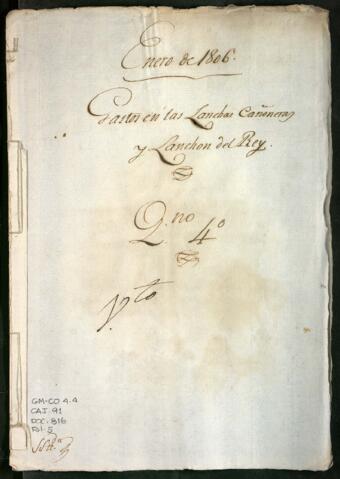 Enero de 1806.
Gastos en las Lanchas Cañoneras
y Lanchon del Rey.
Q.no 4º
V.to
GM-CO 4.4
CAJ. 91
DOC. 816
Fol. 5